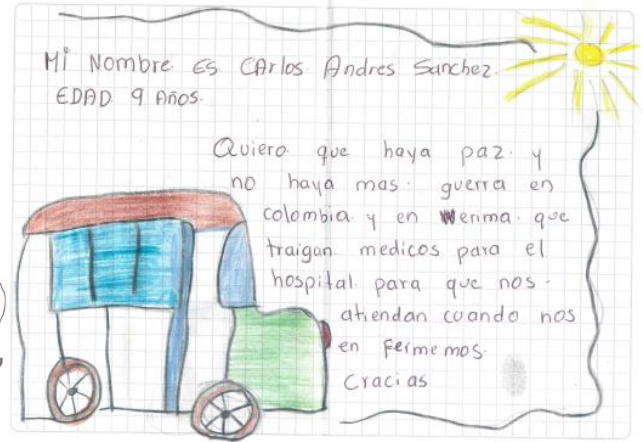 Mi Nombre. Es CArlos Andres Sanchez.
EDAD 9 Años.
Quiero que haya paz. y
no haya mas. guerra en
colombia. y en Werima. que
traigan medicos para el
hospital. para que nos.
atiendan cuando nos
en Fermemos.
Cracias